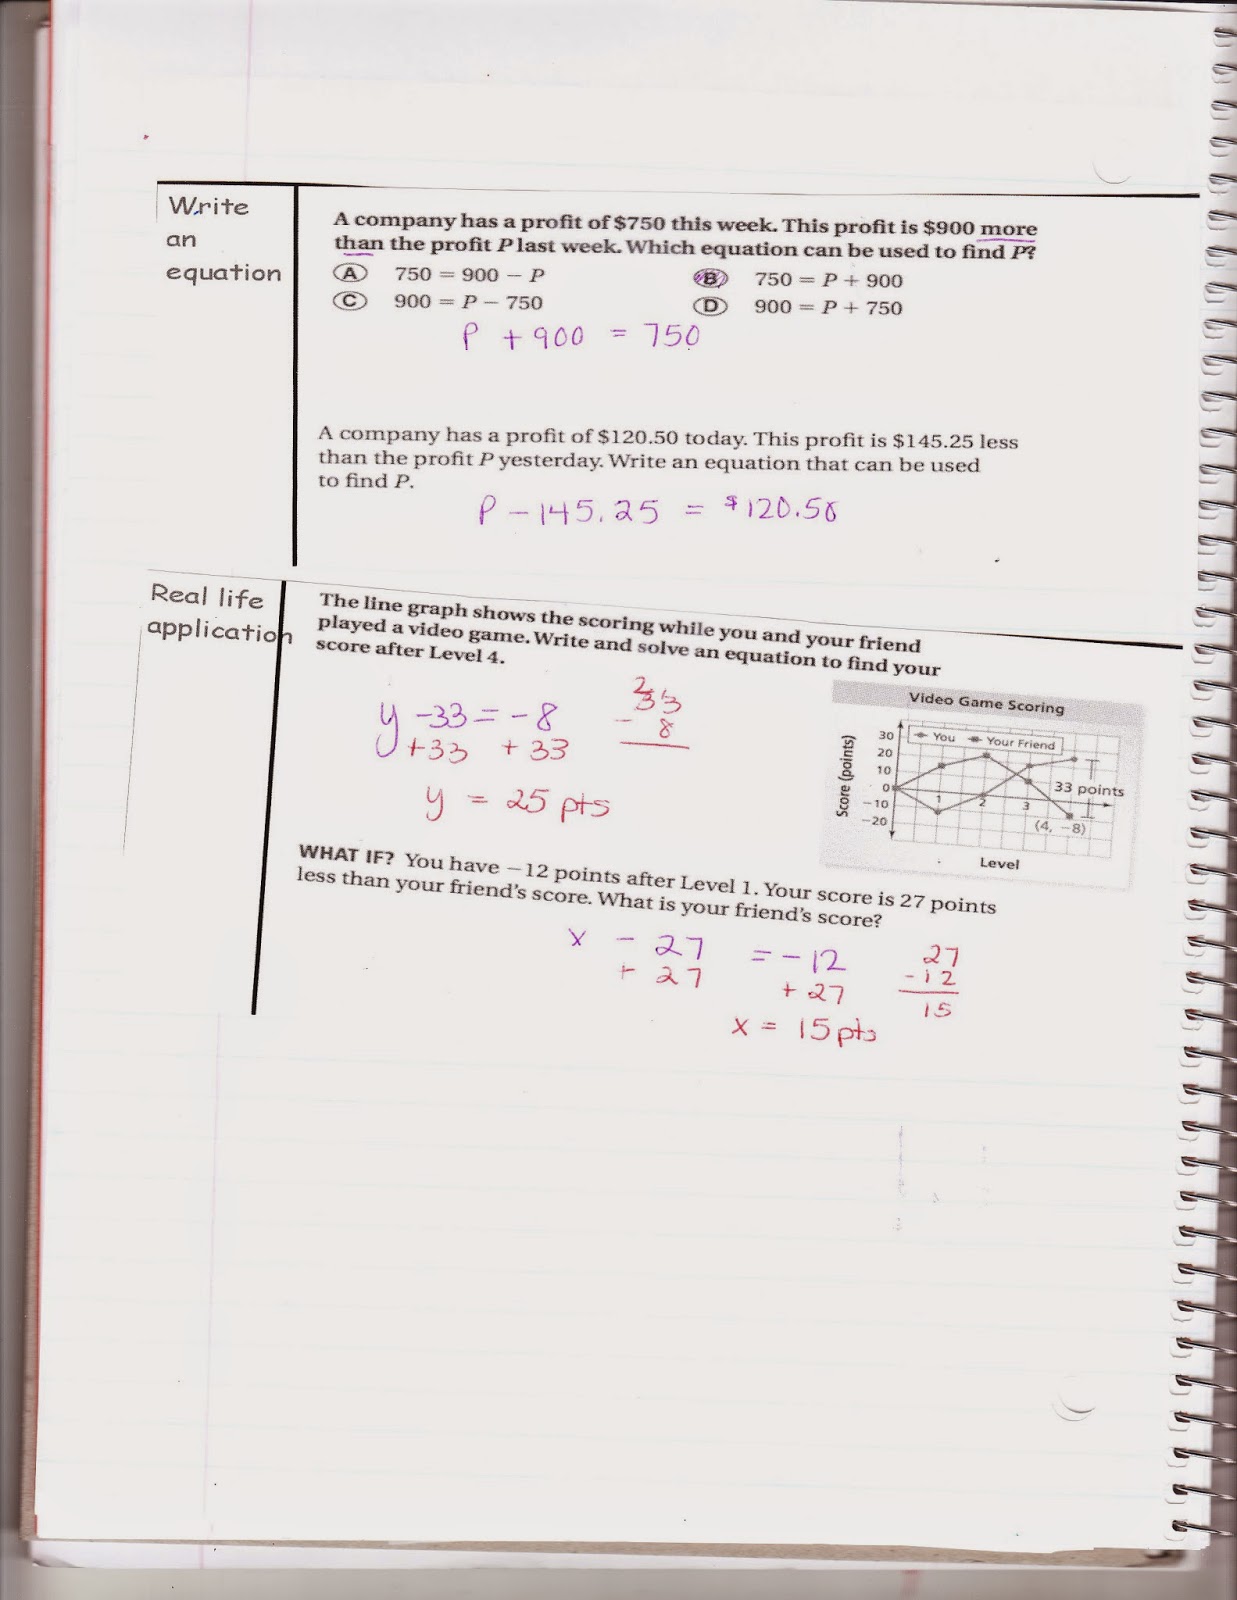 Write
an
equation
A company has a profit of $750 this week. This profit is $900 more
than the profit P last week. Which equation can be used to find P?
A 750 = 900 − P B 750 = P + 900
C 900 = P − 750 D 900 = P + 750
P + 900 = 750
A company has a profit of $120.50 today. This profit is $145.25 less
than the profit P yesterday. Write an equation that can be used
to find P.
P − 145.25 = $120.50
Real life
application
The line graph shows the scoring while you and your friend
played a video game. Write and solve an equation to find your
score after Level 4.
y −33 = −8
+33 +33
y = 25 pts
2
33
− 8
Video Game Scoring
You Your Friend
Score (points)
30
20
10
0
−10
−20
1 2 3
33 points
(4, −8)
Level
WHAT IF? You have −12 points after Level 1. Your score is 27 points
less than your friend's score. What is your friend's score?
x − 27 = −12
+ 27 + 27
x = 15 pts
27
−12
15